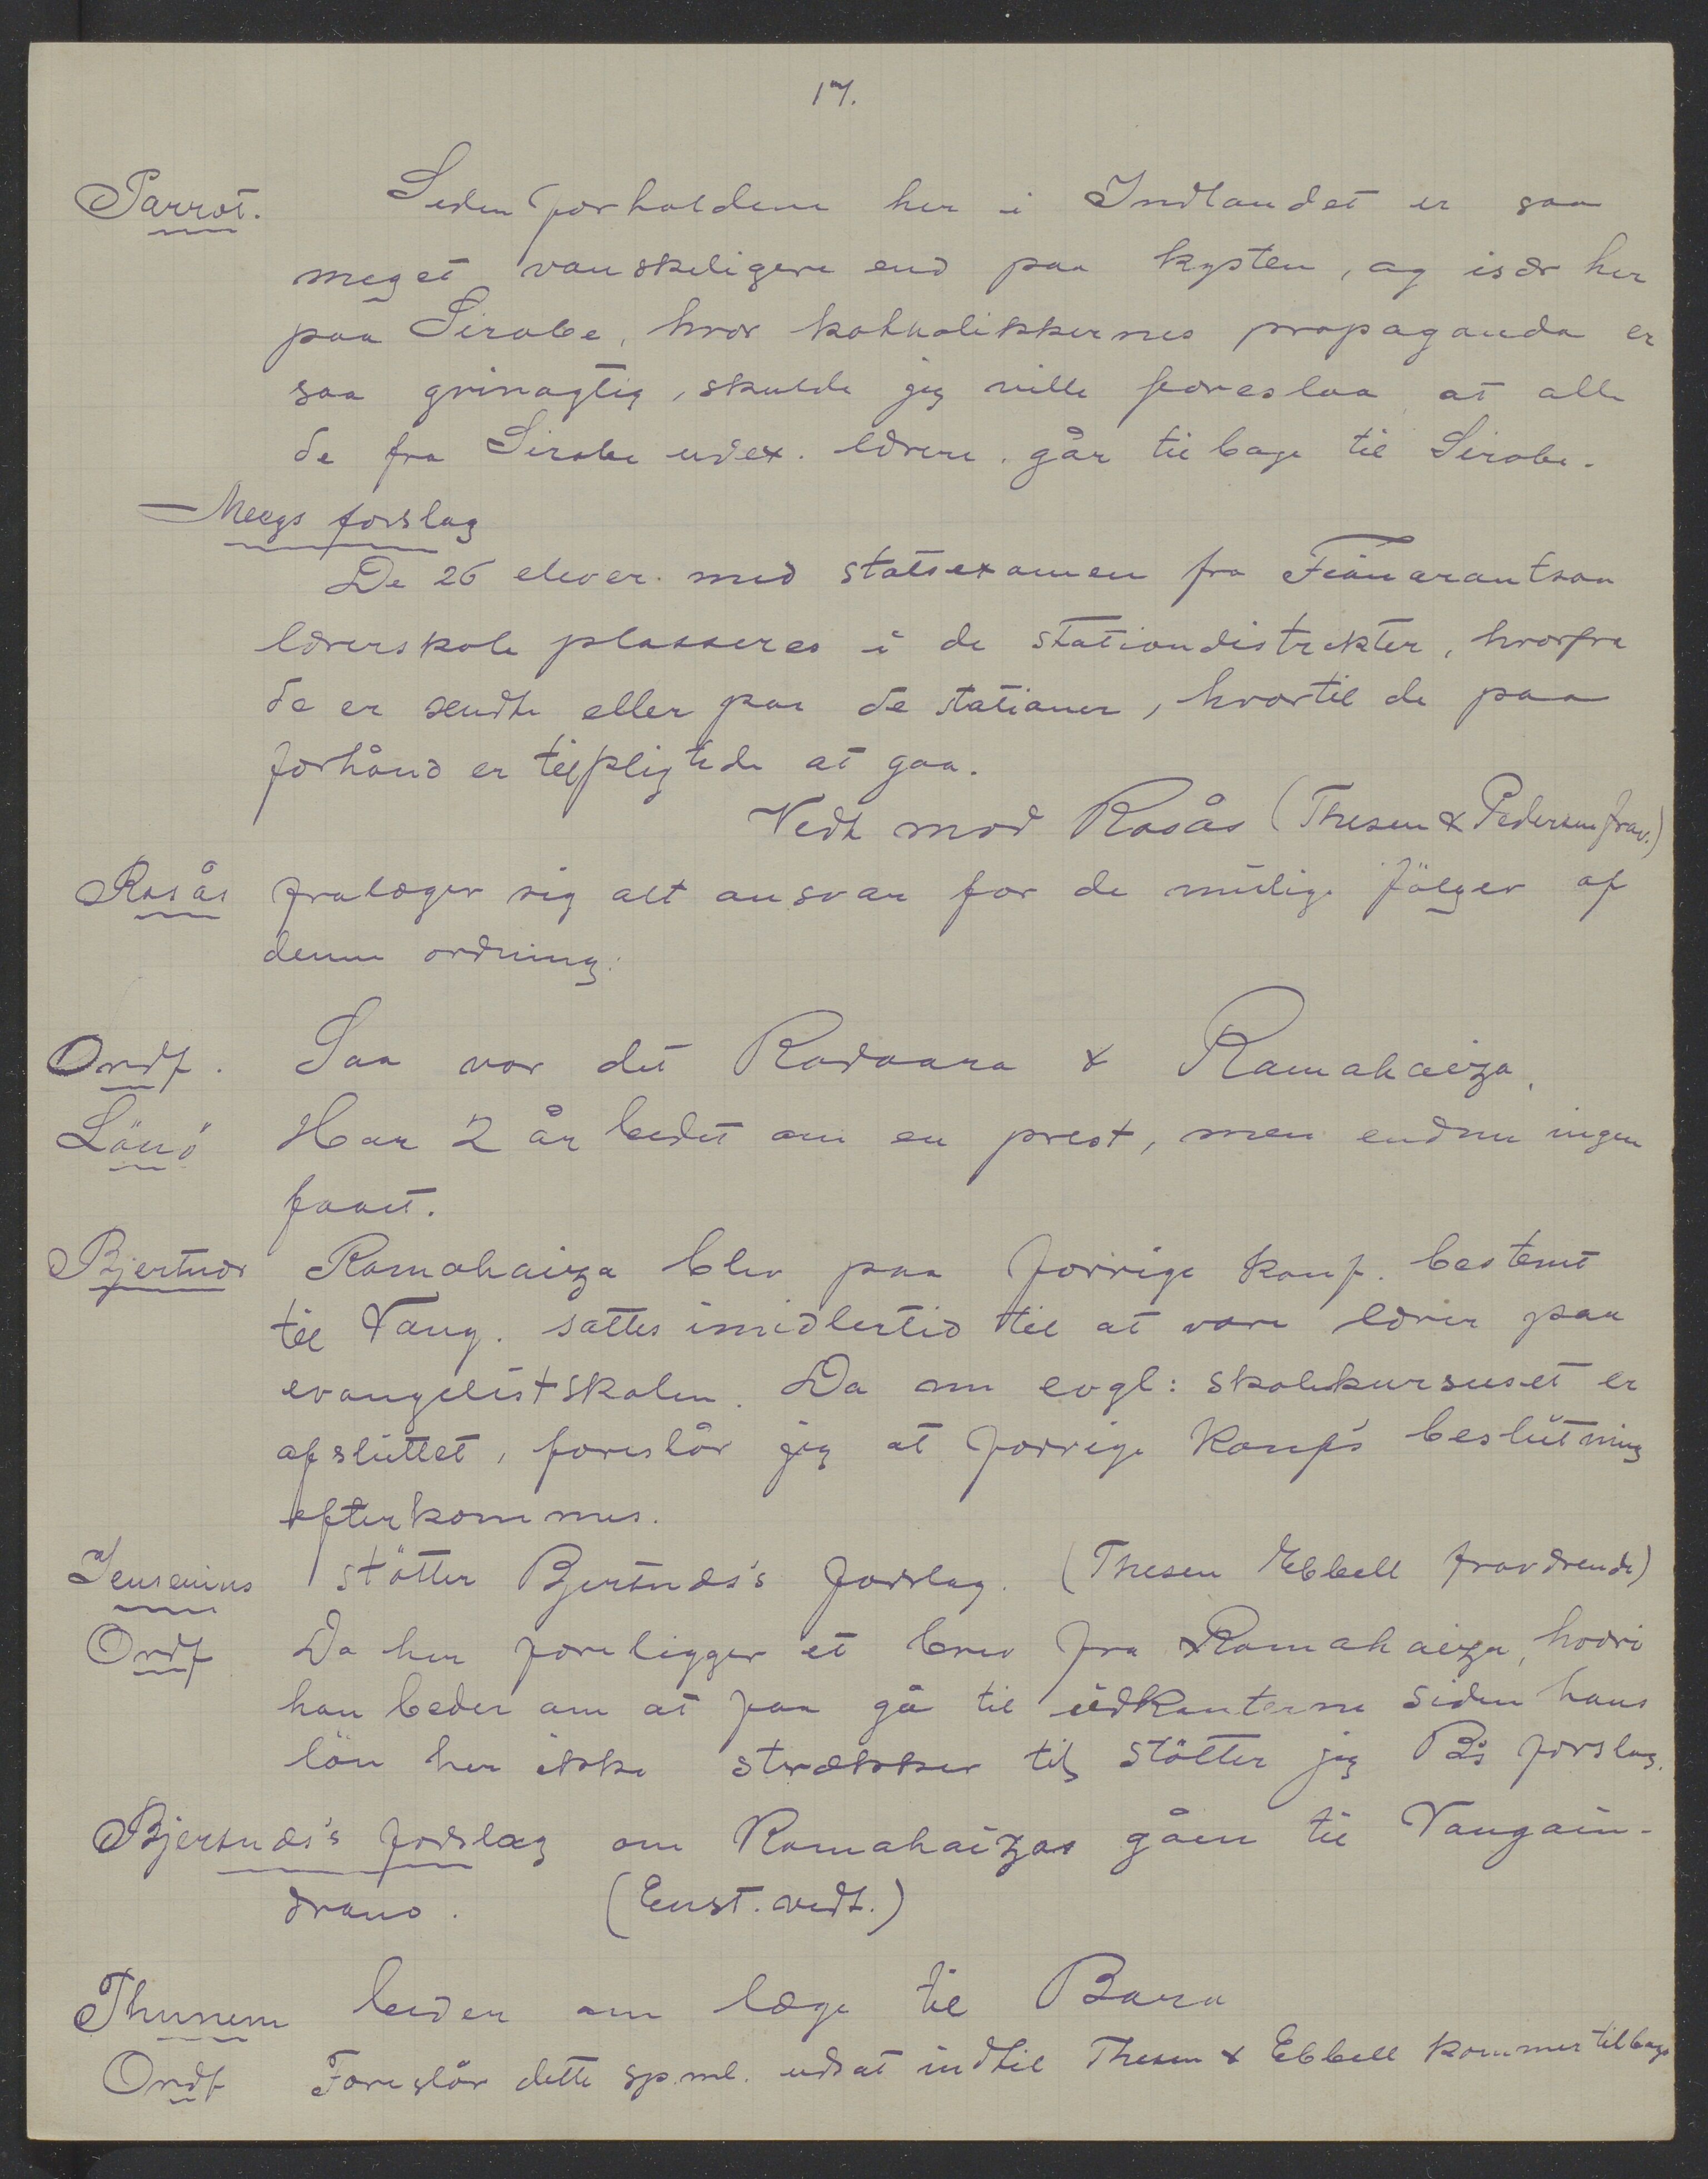 17.
Parrot. Siden forholdene her i Indlandet er saa
meget vanskeligere end paa kysten, og især her
paa Sirabe, hvor katholikkernes propaganda er
saa grinagtig, skulde jeg ville foreslaa at alle
de fra Sirabe udex. lærere går tilbage til Sirabe.
— Meegs forslag
De 26 elever med statsexamen fra Fianarantsoa
lærerskole plasseres i de stationdistrikter, hvorfra
de er sendte eller paa de stationer, hvortil de paa
forhånd er tilpligtede at gaa.
Vedt mod Rosås (Thesen & Pedersen frav.)
Rosås fralæger sig alt ansvar for de mulige fölger af
denne ordning.
Ordf. Saa var det Radaara & Ramahaiza.
Lönö Har 2 år bedet om en prest, men endnu ingen
faaet.
Bjertnæs Ramahaiza blev paa forrige konf. bestemt
til Vang. sattes imidlertid til at være lærer paa
evangelistskolen. Da nu evgl: skolekursuset er
afsluttet, foreslår jeg at forrige konf's beslutning
efterkommes.
Jensenius stötter Bjertnæs's forslag. (Thesen Ebbell fraværende)
Ordf Da her foreligger et brev fra Ramahaiza, hvori
han beder om at faa gå til udkanterne siden hans
lön her ikke strækker til, stötter jeg B's forslag.
Bjertnæs's forslag om Ramahaizas gåen til Vangain-
drano. (Enst. vedt.)
Thunem beder om læge til Bara
Ordf Foreslår dette sp.ml. udsat indtil Thesen & Ebbell kommer tilbage